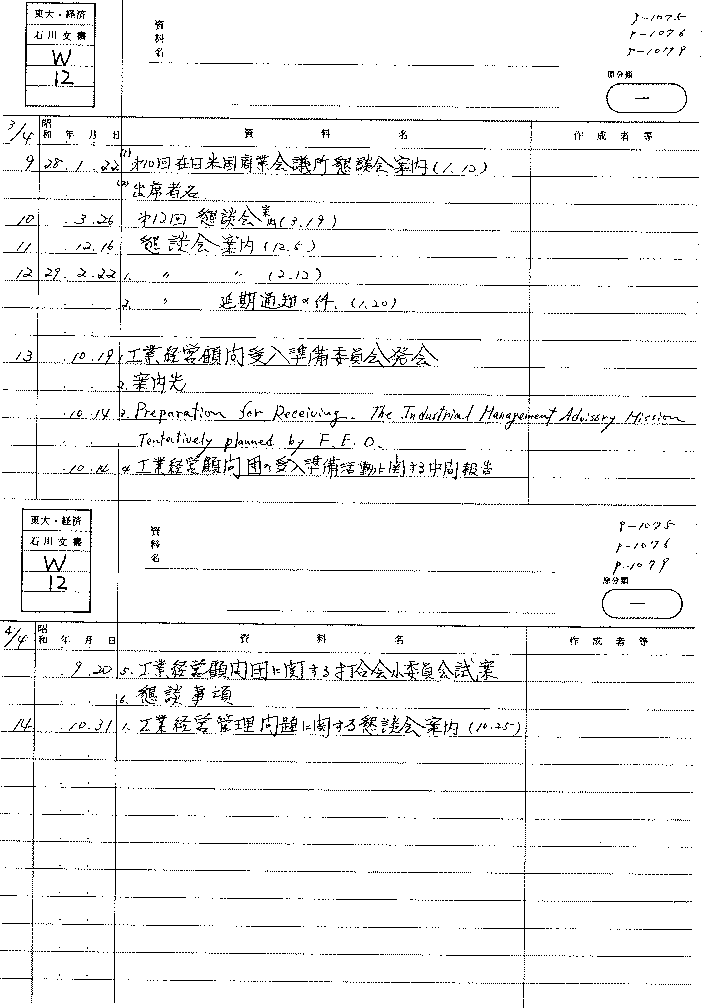 東大・経済
石川文書
W
12
資料名
P-1075
P-1076
P-1079
原分類
一
3/4 昭和 年 月 日 資料名 作成者等
9 28.1.22 (1) 第10回在日米国商業会議所懇談会案内(1.12)
(2) 出席者名
10 .3.26 第12回 懇談会案内(3.19)
11 .12.16 懇談会案内(12.5)
12 29.2.22 1. 〃 〃 (2.12)
2. 〃 延期通知の件、(1.20)
13 .10.19 1. 工業経営顧問受入準備委員会発会
2. 案内先
.10.14 3. Preparation for Receiving. The Industrial Management Advisory Mission
Tentatively planned by F.E.O.
.10.14 4. 工業経営顧問団の受入準備活動に関する中間報告
東大・経済
石川文書
W
12
資料名
P-1075
P-1076
P-1079
原分類
一
4/4 昭和 年 月 日 資料名 作成者等
9.20 5. 工業経営顧問団に関する打合会小委員会試案
6. 懇談事項
14 10.31 1. 工業経営管理問題に関する懇談会案内(10.25)